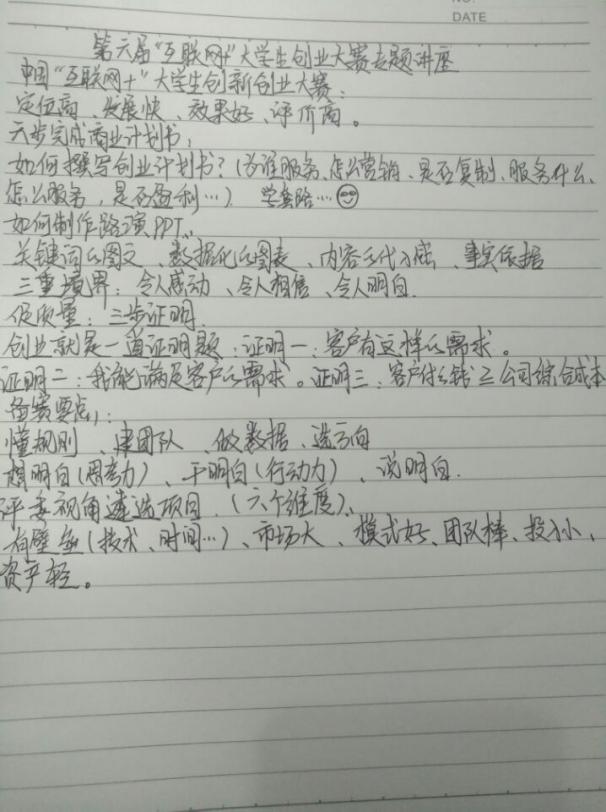 DATE
第六届"互联网+"大学生创业大赛专题讲座
中国"互联网+"大学生创新创业大赛:
定位高、发展快、效果好、评价高。
六步完成商业计划书:
如何撰写创业计划书?(为谁服务、怎么营销、是否复制、服务什么、
怎么服务,是否盈利…) 学套路…
如何制作路演PPT:
关键词的图文、数据化的图表、内容的代入感、事实依据
三重境界:令人感动、令人相信、令人明白.
保质量:三步证明.
创业就是一道证明题:证明一:客户有这样的需求。
证明二:我能满足客户的需求。证明三:客户付的钱≥公司综合成本
备赛要点:
懂规则、建团队、做数据、选方向
想明白(思考力)、干明白(行动力)、说明白.
评委视角遴选项目.(六个维度)、
有壁垒(技术、时间…)、市场大、模式好、团队棒、投入小、
资产轻。